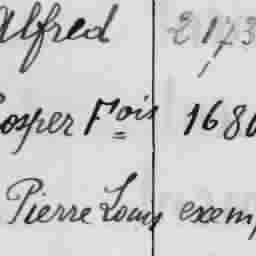 Alfred 2173
osper Fois 1680
Pierre Louis exem